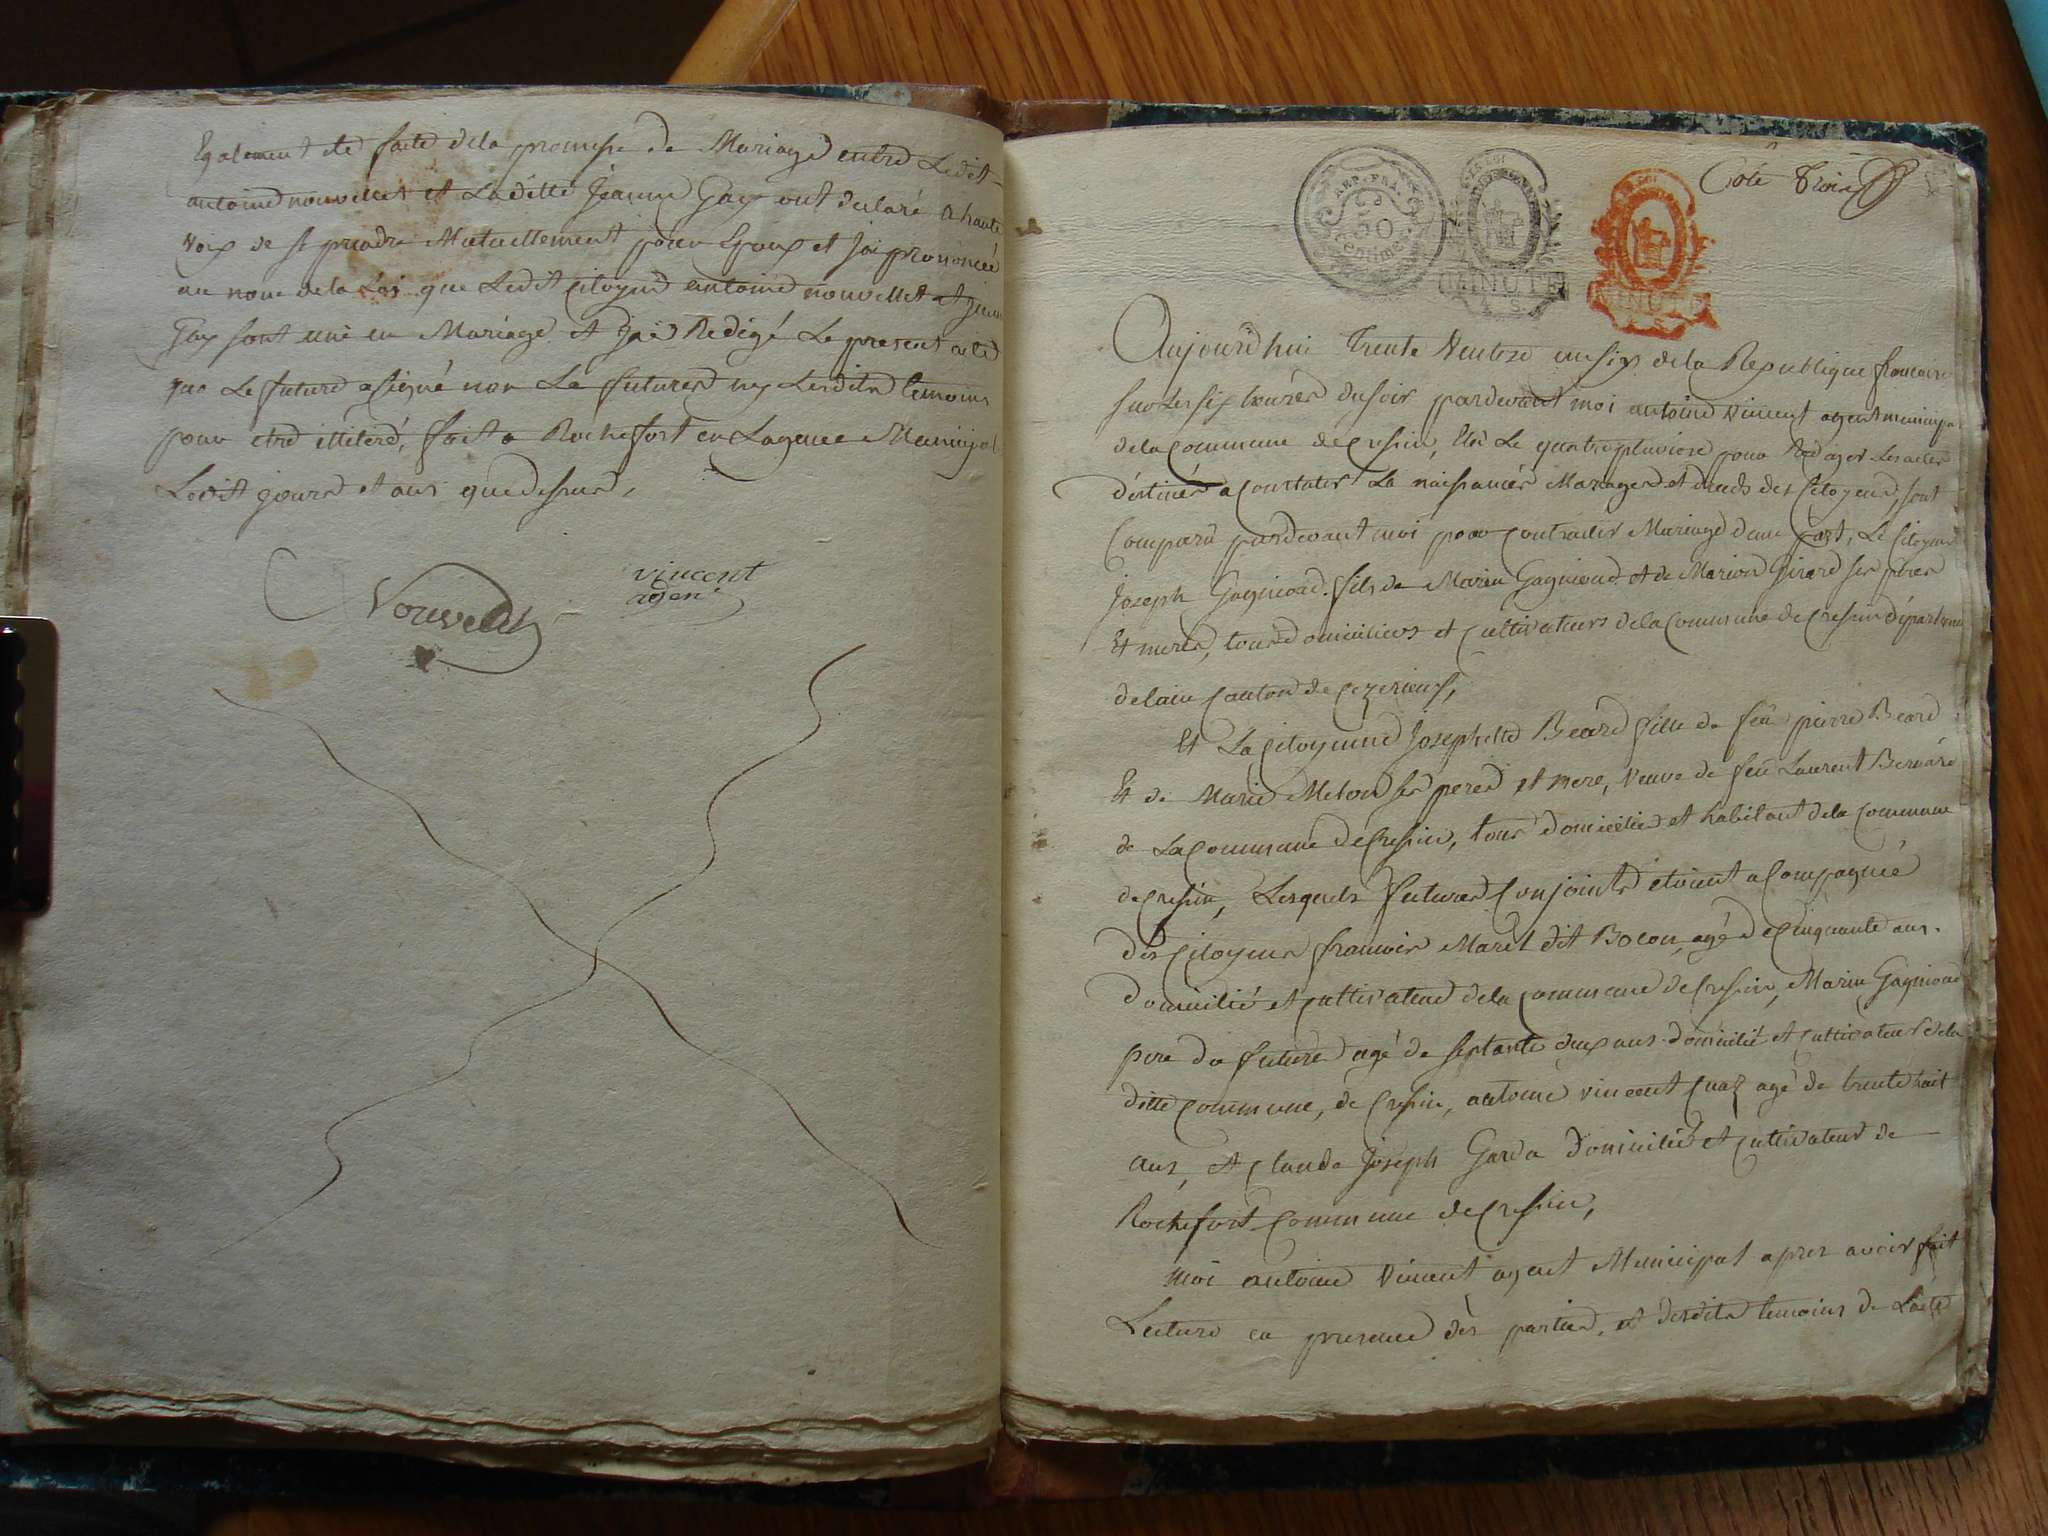 Egalement été faite dela promesse de Mariage entre Ledit
antoine nouvellet et Laditte Jeanne Gay ont declaré a haute
voix de se prendre Mutuellement pour Epoux et jai prononcée
au nom dela Loi que Ledit Citoyend antoine nouvellet et Jeanne
Gay sont unie en Mariage et jai Redigé Le present acte
que Le future a signé non La future ny Lesdits temoins
pour etre illiteré, fait a Rochefort en Lagence Municipal
Ledit jours et ans que dessus,
Nouvellet
vincent
agent
Coté Troix
REP. FRA.
50
Centimes
MINUTE
MINUTE
Aujourdhui Trente Ventose an six dela Republique francaise
sur Les six heures du soir pardevant moi antoine vincent agent municipal
dela Commune de Cressin, Elû Le quatre pluviose pour Rediger Les actes
déstinés a Constater La naissances Mariages et deceds des Citoyens, sont
Comparû pardevant moi pour Contracter Mariage dune part, Le Citoyens
Joseph Gagnioud fils de Marin Gagnioud et de Marion Girard ses peres
Et meres, tous domiciliers et Cultivateurs dela Commune de Cressin départemen
delain Canton de Cezerieux,
Et La Citoyenne Josephette Beard fille de feû pierre Beard
Et de Marie Melon ses peres et mere, veuve de feû Laurent Bernard
de La Commune de Cressin, tous domicilier et habitant dela Commune
de Cressin, Lesquels futures Conjoints etoient a Compagnié
des Citoyens francois Maret dit Bocon, agé de Cinquante ans
domicilié et Cultivateur dela Commune de Cressin, Marin Gagnioud
pere du future agé de septante deux ans domicilié et Cultivateur dela
ditte Commune, de Cressin, antoine vincent Cuaz agé de trente huit
ans, et Claude Joseph Garda Domicilié et Cultivateur de
Rochefort Commune de Cressin,
moi antoine vincent agent Municipal apres avoir fait
Lecture en presence dès parties, et desdits temoins de Lacte